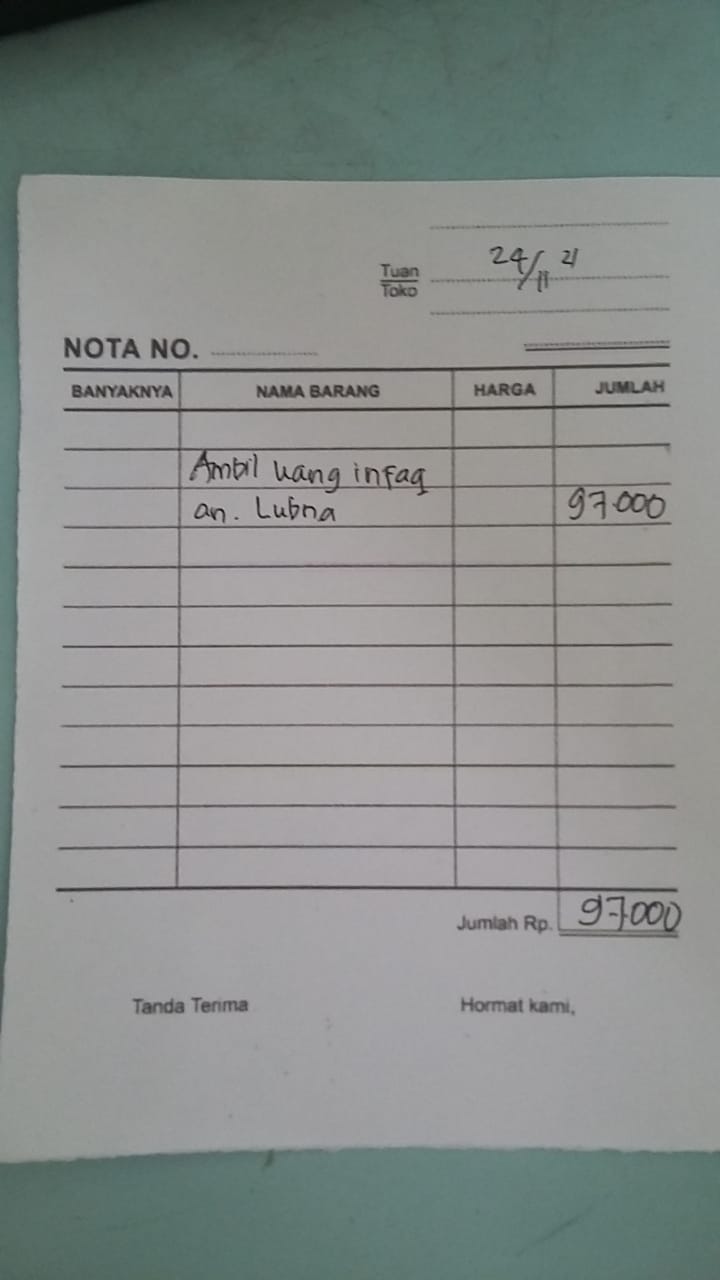 24/11 21
Tuan
Toko
NOTA NO.
BANYAKNYA NAMA BARANG HARGA JUMLAH
Ambil uang infaq
an. Lubna 97.000
Jumlah Rp. 97.000
Tanda Terima Hormat kami,